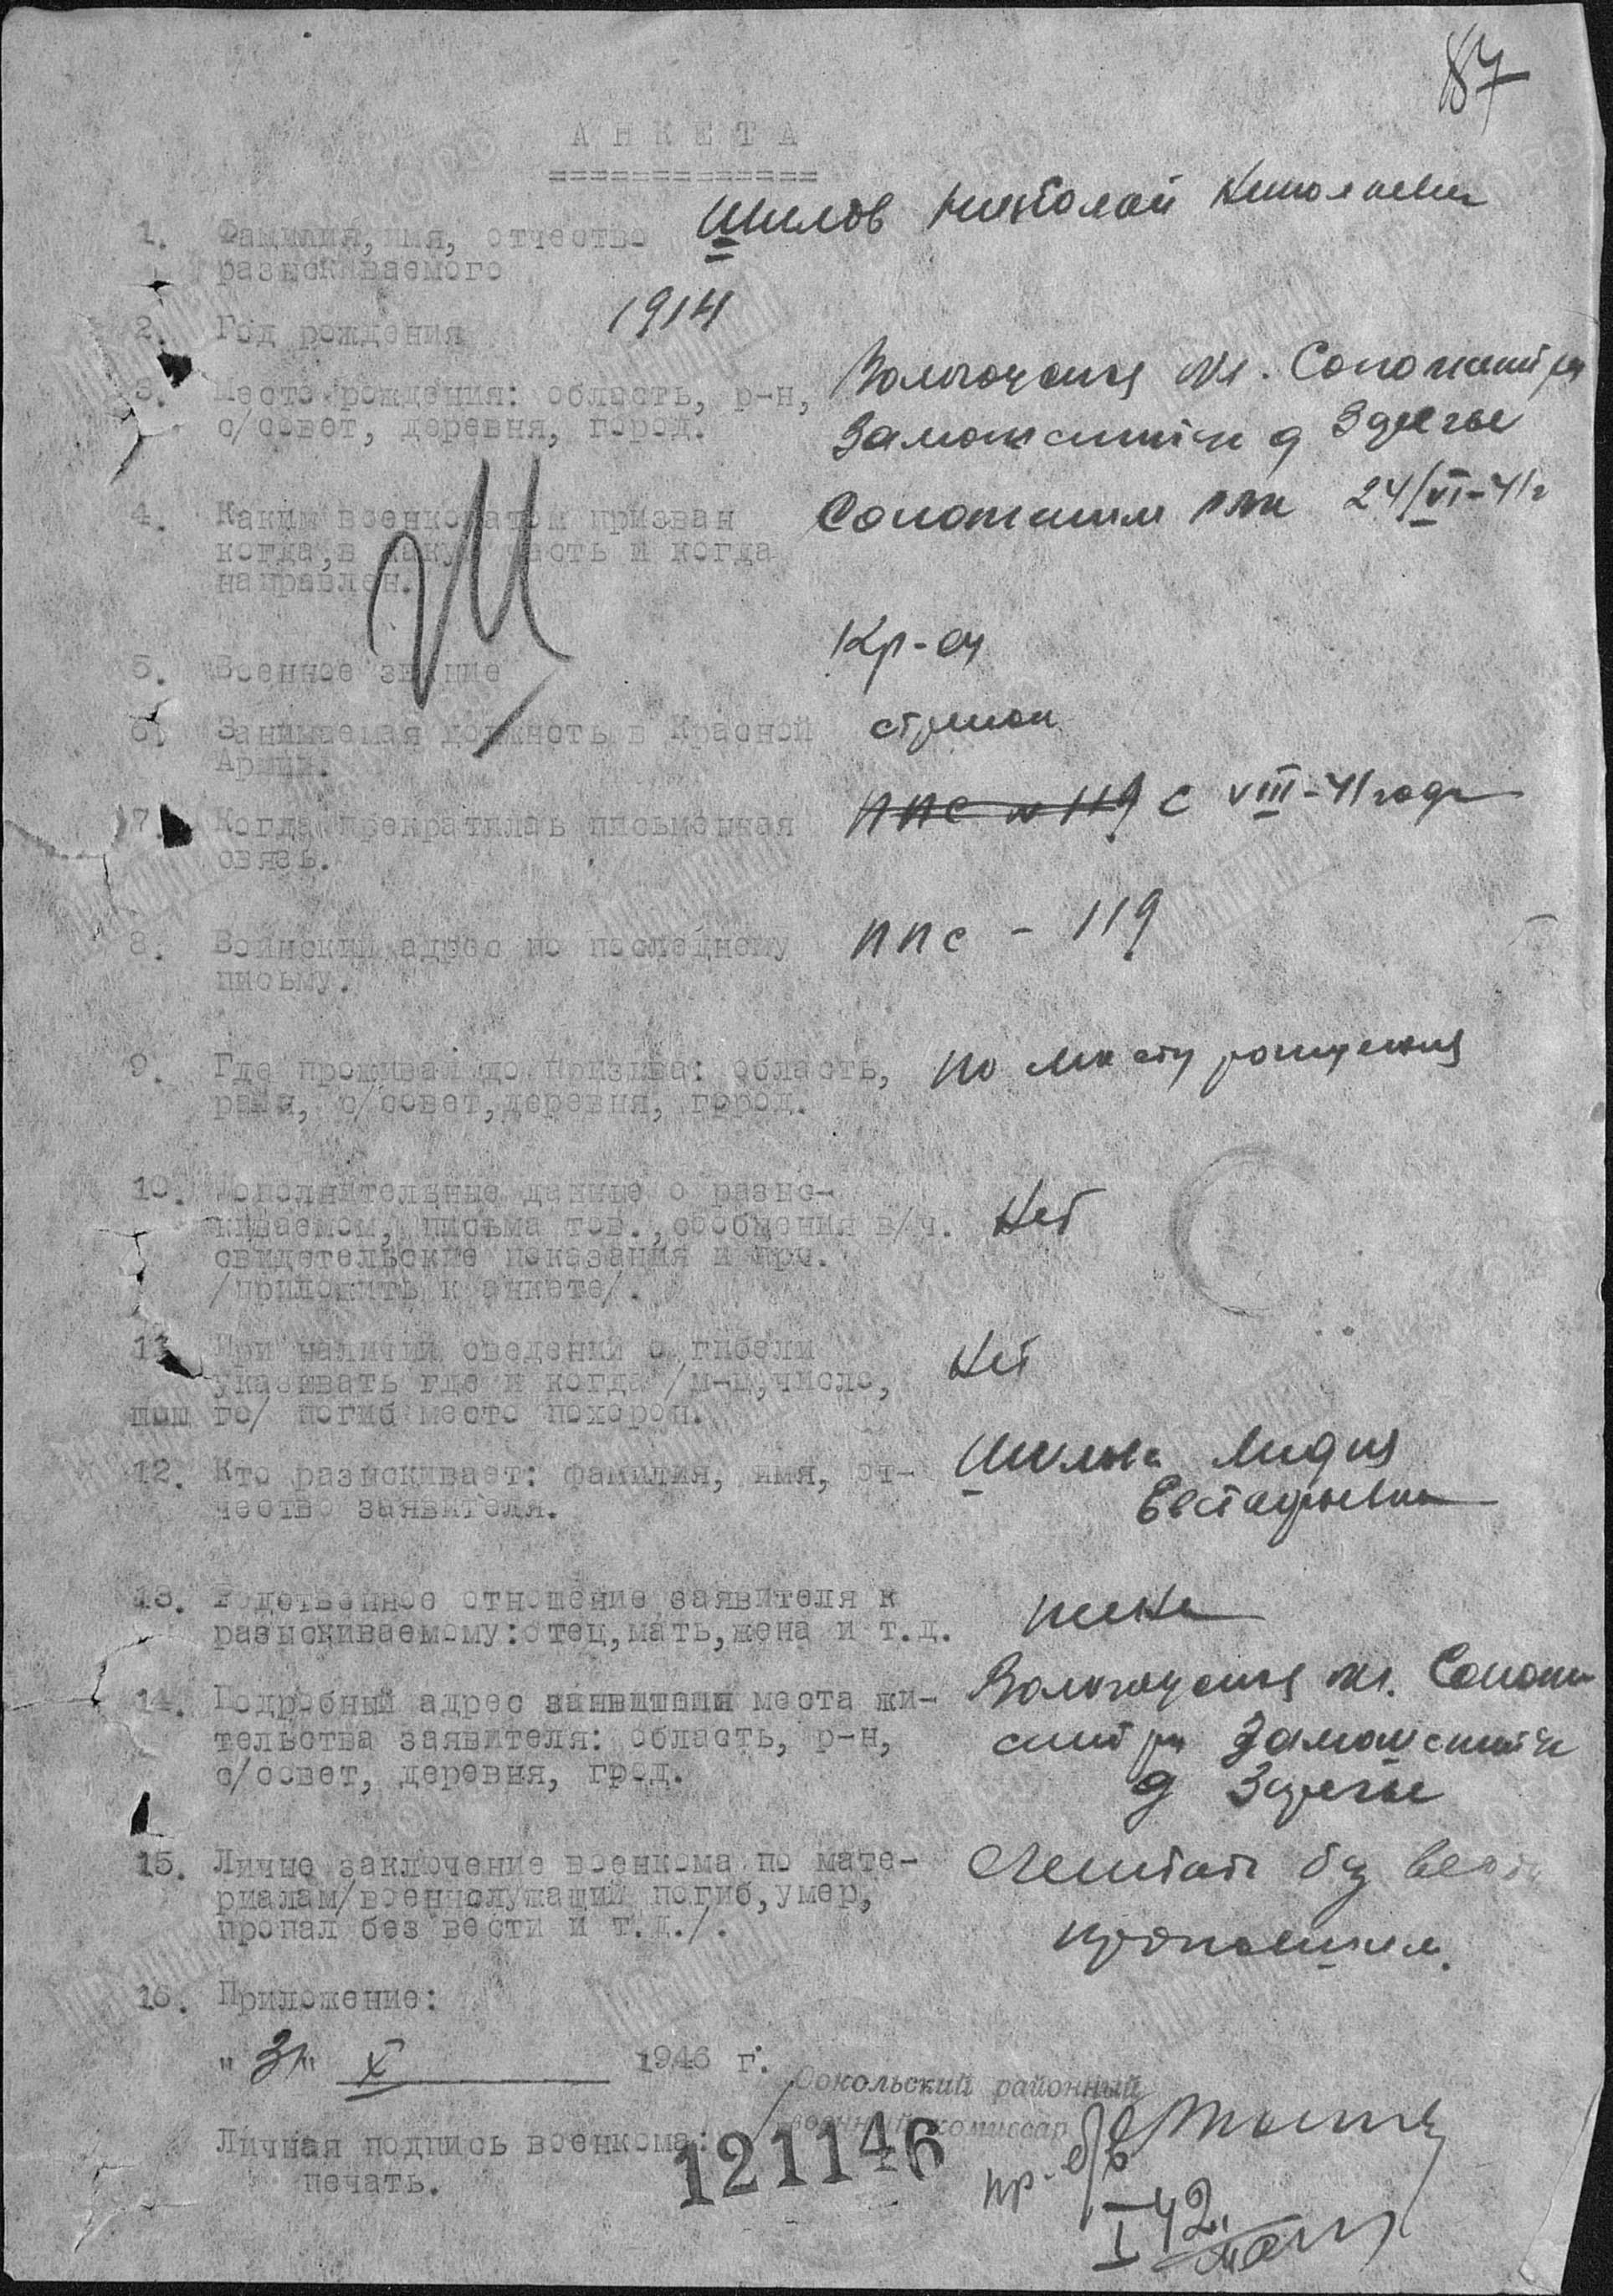 87
АНКЕТА
=============
1. Фамилия, имя, отчество Шилов Николай Николаевич
разыскиваемого
2. Год рождения 1914
3. Место рождения: область, р-н, Вологодская обл. Сокольский р-н
с/совет, деревня, город. д
4. Каким военкоматом призван Сокольским РВК 24/VI-41г
когда, в какую часть и когда
направлен.
5. Военное звание Кр-ец
6. Занимаемая должность в Красной стрелок
Армии.
7. Когда прекратилась письменная ППС N 119 с VIII-41 года
связь.
8. Воинский адрес по последнему ППС - 119
письму.
9. Где проживал до призыва: область, по месту рождения
район, с/совет, деревня, город.
10. Дополнительные данные о разыс-
киваемом, письма тов., сообщения в/ч. Нет
свидетельские показания и про.
/приложить к анкете/.
11. При наличии сведений о гибели
указывать где и когда /м-ц, число, Нет
го/ погиб место похорон.
12. Кто разыскивает: фамилия, имя, от- Шилова Лидия
чество заявителя. Евстафьевна
13. Родственное отношение заявителя к
разыскиваемому: отец, мать, жена и т.д. жена
14. Подробный адрес места жи- Вологодская обл. Соколь
тельства заявителя: область, р-н, ский р-н
с/совет, деревня, город. д
15. Личное заключение военкома по мате- Считать без вести
риалам/военнослужащий погиб, умер,
пропал без вести и т.д./. пропавшим.
16. Приложение:
"31" X 1946 г.
Сокольский районный
военный комиссар
Личная подпись военкома:
121146
печать.
пр. б/в
I 42г.